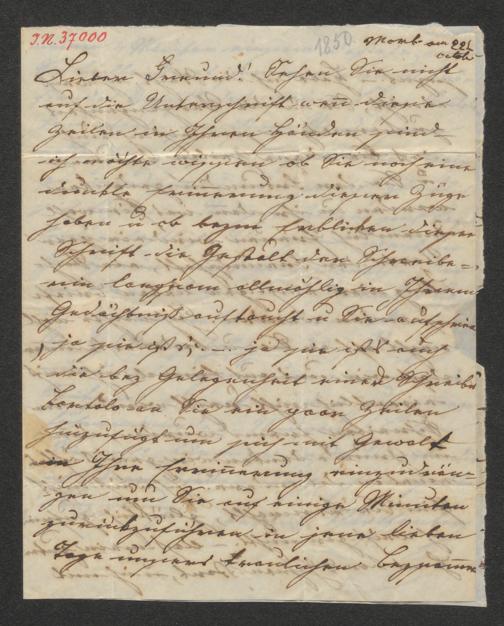 I.N. 37000
1850
Moor am 22t
Octob
Lieber Freund! Sehen Sie nicht
auf die Unterschrift wen̅ diese
Zeilen in Ihren Händen sind
ich möchte wissen ob Sie noch eine
dunkle Erin̅erung dieser Züge
haben u ob beym Erblicken dieser
Schrift die Gestalt der Schreibe-
rin langsam allmählig in Ihrem
Gedächtniß auftaucht u Sie
ja sie ist's, – ja sie ist's auch
die bey Gelegenheit eines Schreibe
Bartolo an Sie ein paar Zeilen
hinzufügt um sich mit Gewalt
in Ihre Erin̅erung einzudrän-
gen um Sie auf einige Minuten
zurückzuführen in jene lieben
Tage unsers traulichen